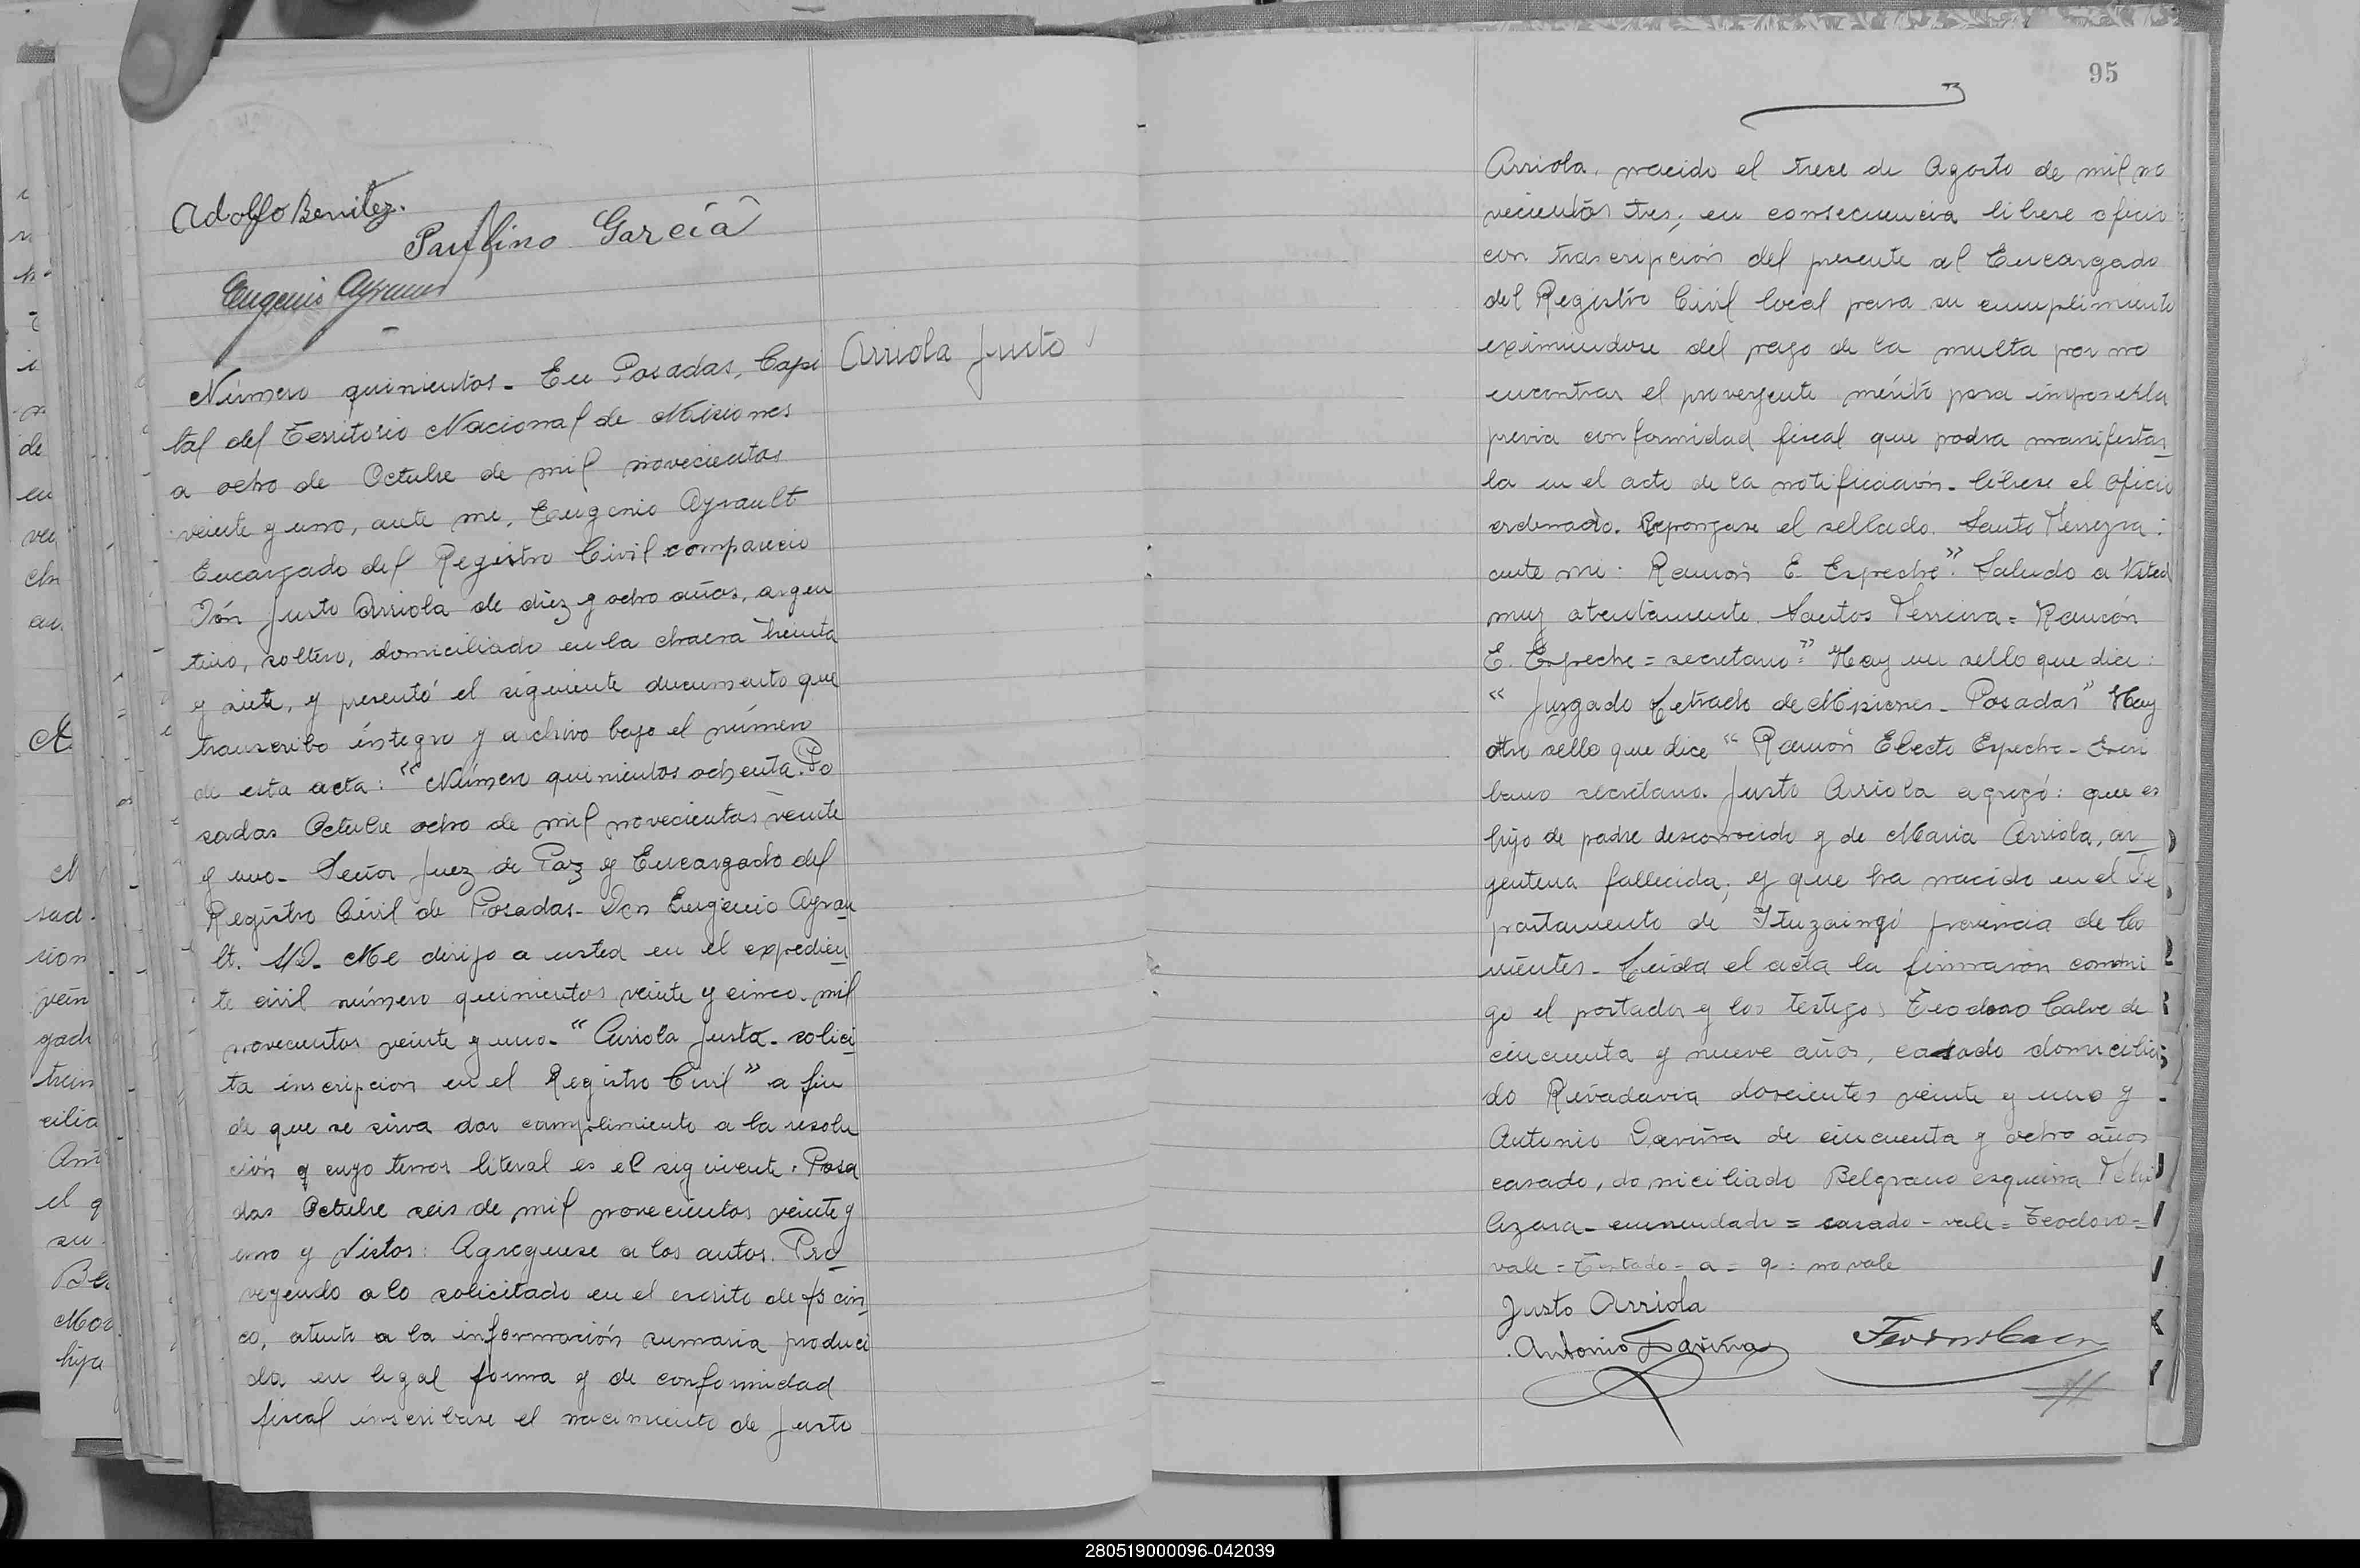 Adolfo Benitez.
Paulino García
Eugenio Ayrault
Arriola Justo
Número quinientos. En Posadas, Capi
tal del Territorio Nacional de Misiones
a ocho de Octubre de mil novecientos
veinte y uno, ante mi, Eugenio Ayrault
Encargado del Registro Civil comparecio
Dón Justo Arriola de diez y ocho años, argen
tino, soltero, domiciliado en la chacra treinta
y siete, y presentó el siguiente documento que
transcribo íntegro y archivo bajo el número
de esta acta: "Número quinientos ochenta. Po
sadas Octubre ocho de mil novecientos veinte
y uno- Señor Juez de Paz y Encargado del
Registro Civil de Posadas- Don Eugenio Ayrau
lt. S/D- Me dirijo a usted en el expedien
te civil número quinientos veinte y cinco. mil
novecientos veinte y uno- "Arriola Justo- solici
ta inscripcion en el Registro Civil" a fin
de que se sirva dar complimiento a la resolu
ción q cuyo tenor literal es el siguiente. Posa
das Octubre seis de mil novecientos veinte y
uno y Vistos: Agreguese a los autos. Pro
veyendo a lo solicitado en el escrito de fs cin
co, atento a la información sumaria produci
da en legal forma y de conformidad
fiscal inscribase el nacimiento de Justo
95
Arriola, nacido el trece de Agosto de mil no
vecientos tres; en consecuencia librese oficio
con trascripción del presente al Encargado
del Registro Civil local para su cumplimiento
eximiendose del pago de la multa por no
encontrar el proveyente mérito para imponerla
previa conformidad fiscal que podra manifestar
la en el acto de la notificación- librese el oficio
ordenado. Repongase el sellado. Santo Ferreyra:
ante mi: Ramón E. Espeche". Saludo a Usted
muy atentamente. Santos Ferreira = Ramón
E. Espeche = secretario:" Hay un sello que dice:
"Juzgado Letrado de Misiones- Posadas" Hay
otro sello que dice "Ramón Electo Espeche- Escri
bano secretario. Justo Arriola agregó: que es
hijo de padre desconocido y de Maria Arriola, ar
gentina fallecida; y que ha nacido en el De
partamento de Ituzaingó provincia de Co
rrientes- Leida el acta la firmaron conmi
go el portador y los testigos Teodoro Calvo de
cincuenta y nueve años, casado domicilia
do Rivadavia doscientos veinte y uno y
Antonio Daviña de cincuenta y ocho años
casado, domiciliado Belgrano esquina Felix
Azara- enmendado = casado - vale = Teodoro =
vale = Testado - a = q : no vale
Justo Arriola
Antonio Daviña
280519000096-042039